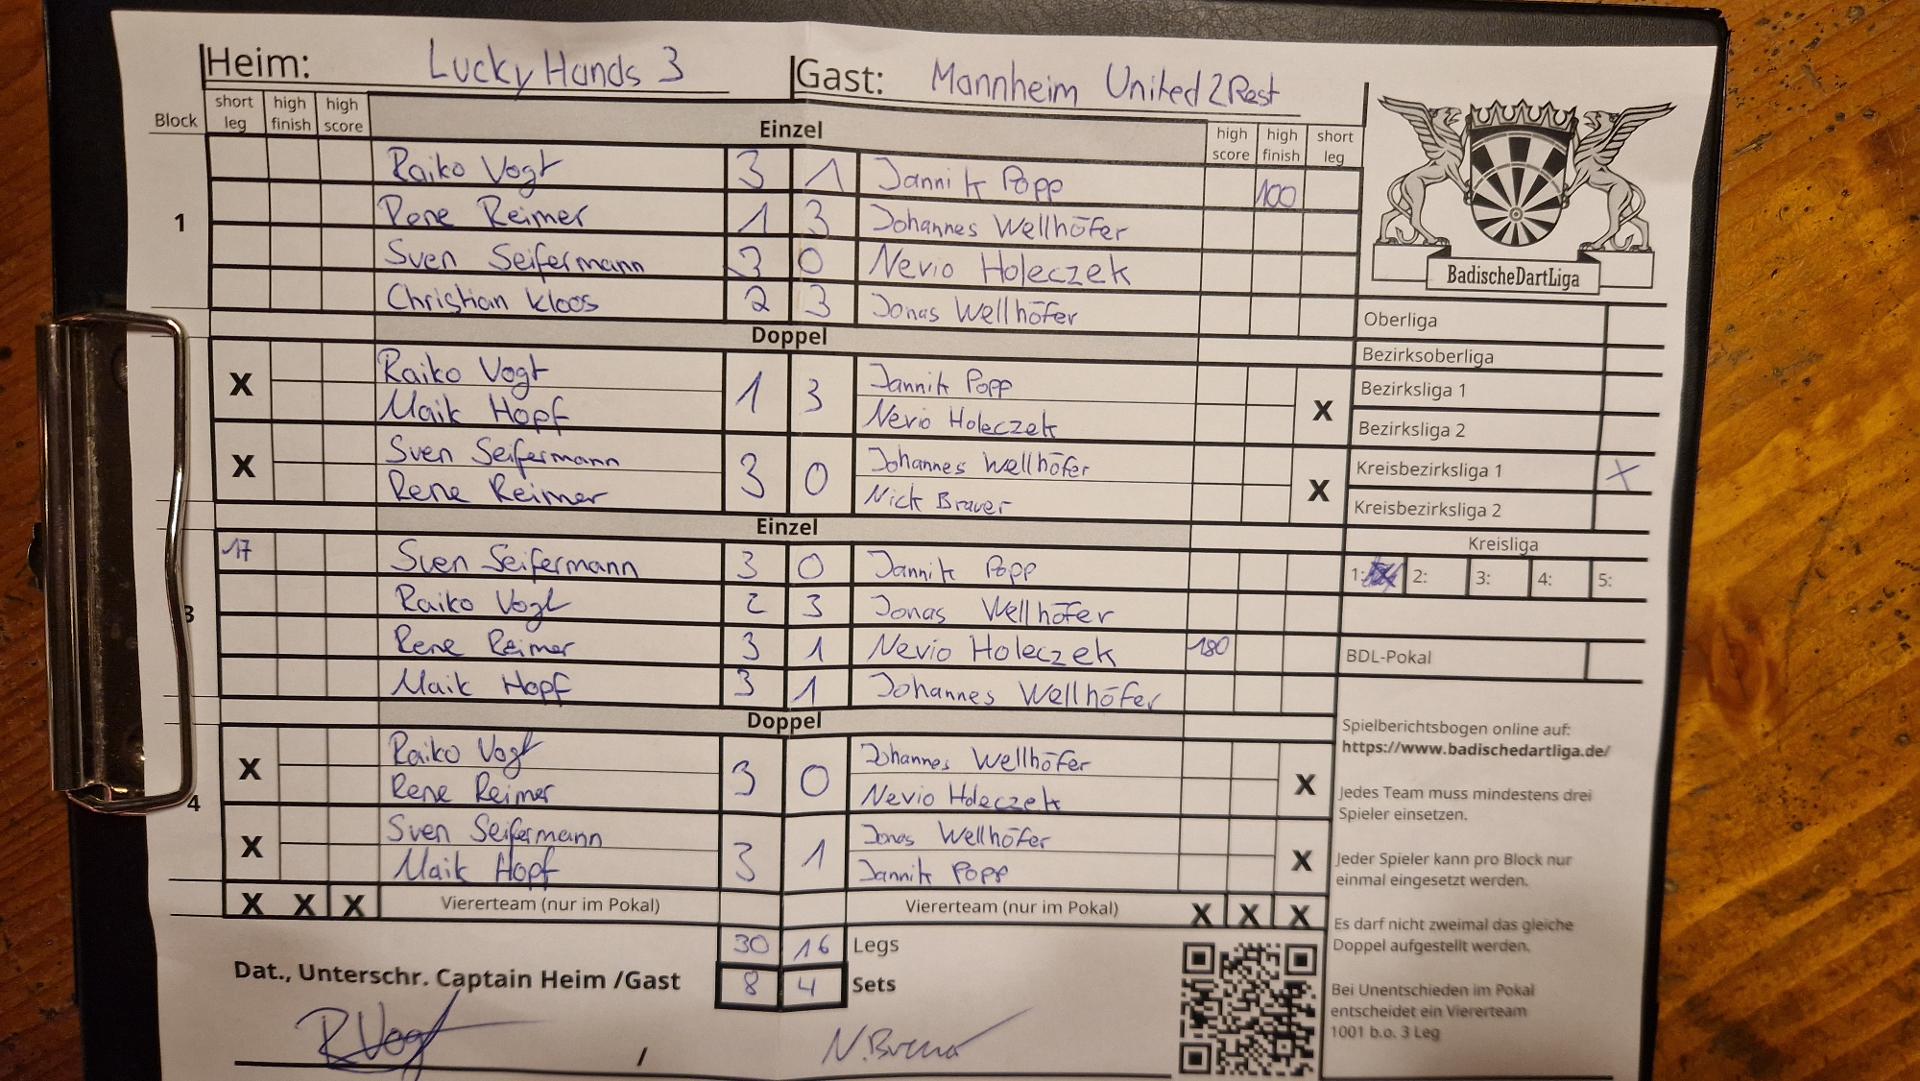 Heim: Lucky Hands 3 Gast: Mannheim United 2Rest
Block short leg high finish high score Einzel high score high finish short leg
Raiko Vogt 3 1 Jannik Popp 100
1 Rene Reimer 1 3 Johannes Wellhöfer
Sven Seifermann 3 0 Nevio Holeczek
Christian Kloos 2 3 Jonas Wellhöfer
Doppel
X Raiko Vogt 1 3 Jannik Popp X
Maik Hopf Nevio Holeczek
X Sven Seifermann 3 0 Johannes Wellhöfer X
Rene Reimer Nick Brauer
Einzel
17 Sven Seifermann 3 0 Jannik Popp
3 Raiko Vogt 2 3 Jonas Wellhöfer
Rene Reimer 3 1 Nevio Holeczek 180
Maik Hopf 3 1 Johannes Wellhöfer
Doppel
X Raiko Vogt 3 0 Johannes Wellhöfer X
4 Rene Reimer Nevio Holeczek
X Sven Seifermann 3 1 Jonas Wellhöfer X
Maik Hopf Jannik Popp
X X X Viererteam (nur im Pokal) Viererteam (nur im Pokal) X X X
30 16 Legs
Dat., Unterschr. Captain Heim /Gast 8 4 Sets
R.Vogt / N.Brauer
BadischeDartLiga
Oberliga
Bezirksoberliga
Bezirksliga 1
Bezirksliga 2
Kreisbezirksliga 1 X
Kreisbezirksliga 2
Kreisliga
1: 2: 3: 4: 5:
BDL-Pokal
Spielberichtsbogen online auf:
https://www.badischedartliga.de/
Jedes Team muss mindestens drei
Spieler einsetzen.
Jeder Spieler kann pro Block nur
einmal eingesetzt werden.
Es darf nicht zweimal das gleiche
Doppel aufgestellt werden.
Bei Unentschieden im Pokal
entscheidet ein Viererteam
1001 b.o. 3 Leg